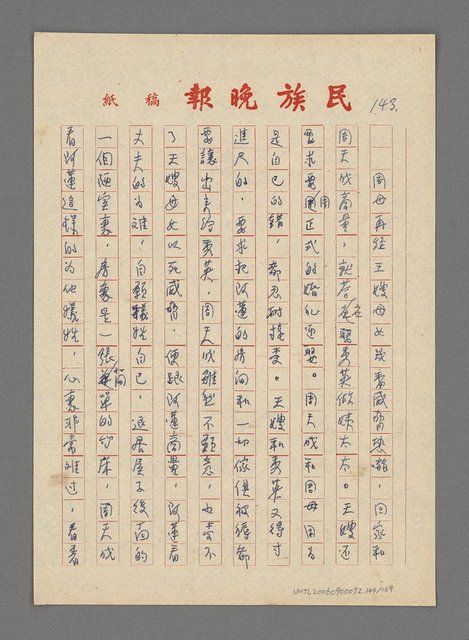 民族晚報 稿紙
143.
周母再經王嫂母女威脅恐嚇，回家和
周天成商量，就答應娶秀英做姨太太。王嫂還
要求要用正式的婚禮迎娶。周天成和周母因為
是自己的錯，都忍耐接受。王嫂和秀英又得寸
進尺的，要求把阿蓮的房間和一切傢俱被褥都
要讓出來給秀英。周天成雖然不願意，也拿不
了王嫂母女以死威脅，便跟阿蓮商量，阿蓮看
丈夫的為難，自願犧牲自己，退居屋子後面的
一個陋室裏，房裏是一張簡單的竹床，周天成
看阿蓮這樣的為他犧牲，心裏非常難過，看看
NMTL20060900072.144/169